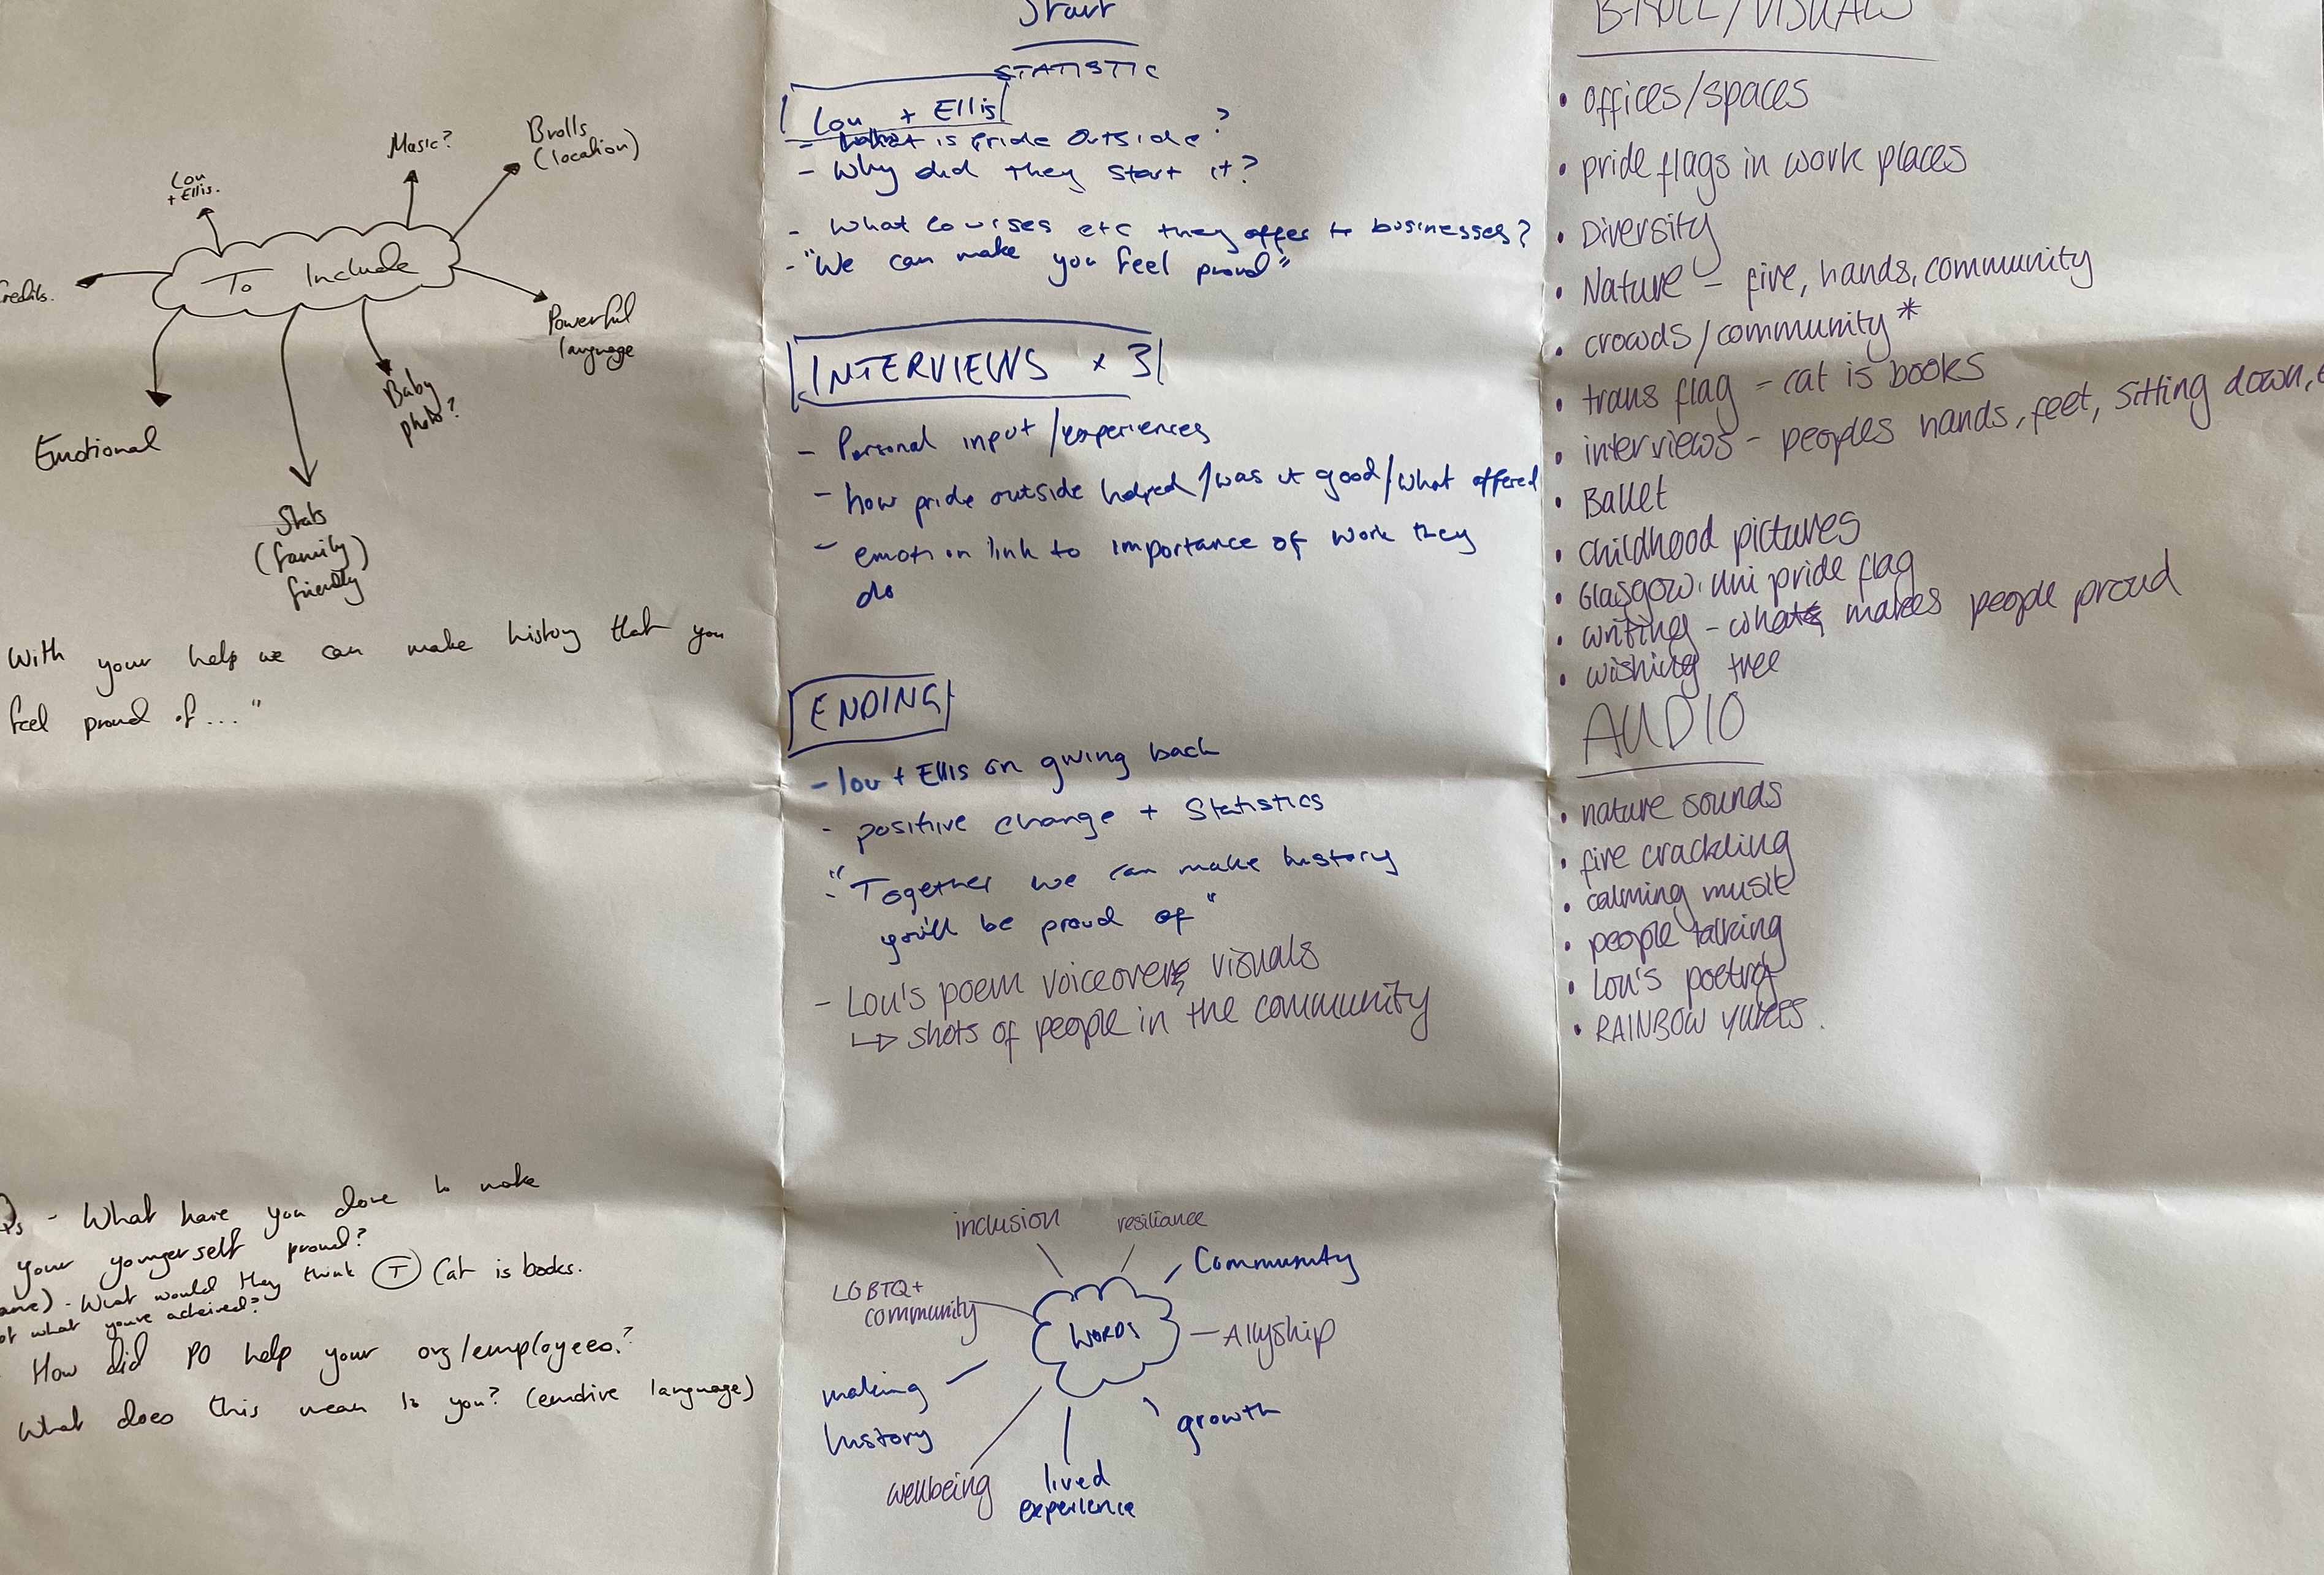 To Include
Lou
+ Ellis.
Music?
Brolls
(location)
Powerful
language
Baby
photo?
Stats
(family)
friendly
Emotional
With your help we can make history that you
feel proud of..."
- What have you done to make
your youngerself proud?
- What would they think
of what you've acheived?
(T) Cat is books.
How did PO help your org/employees?
What does this mean to you? (emotive language)
Start
STATISTIC
Lou + Ellis
- What is Pride Outside?
- Why did they start it?
- What courses etc they offer to businesses?
- "We can make you feel proud"
INTERVIEWS x 3
- Personal input/experiences
- how pride outside helped/was it good/what offered
- emotion link to importance of work they
do
ENDING
- lou + Ellis on giving back
- positive change + Statistics
- "Together we can make history
you'll be proud of"
- Lou's poem voiceover visuals
↳ shots of people in the community
WORDS
inclusion
resiliance
Community
Allyship
growth
lived
experience
wellbeing
making
history
LGBTQ+
community
B-ROLL/VISUALS
• offices/spaces
• pride flags in work places
• Diversity
• Nature - fire, hands, community
• crowds/community *
• trans flag - cat is books
• interviews - peoples hands, feet, sitting down,
• Ballet
• childhood pictures
• Glasgow uni pride flag
• writing - what makes people proud
• wishing tree
AUDIO
• nature sounds
• fire crackling
• calming music
• people talking
• Lou's poetry
• RAINBOW